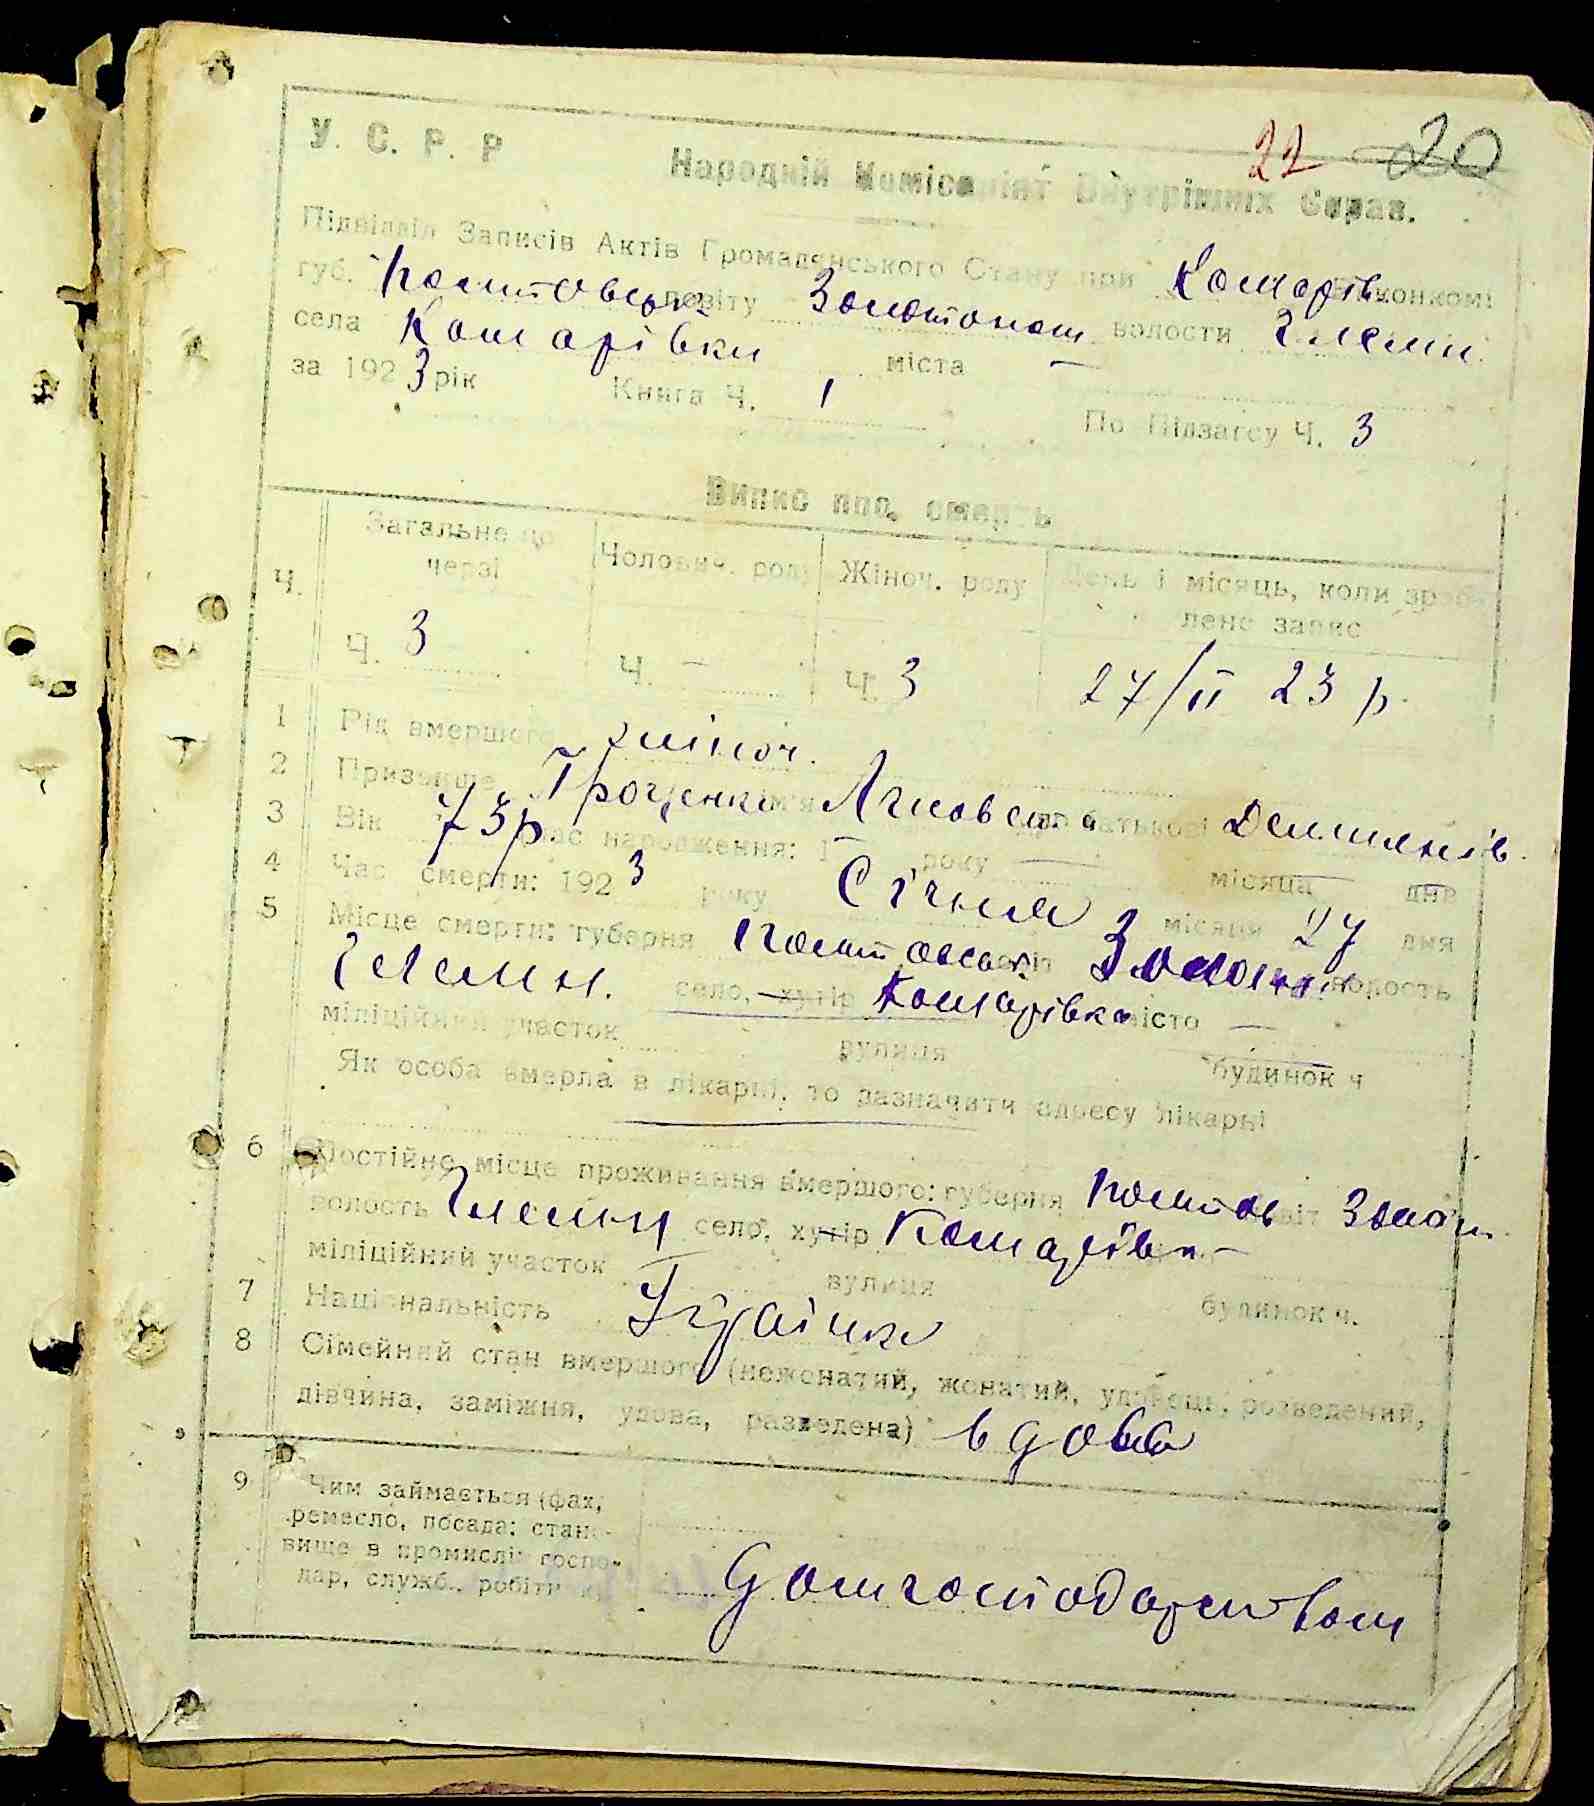 22 20
У. С. Р. Р
Народній Комісаріят Внутрішніх Справ.
Підвідділ Записів Актів Громадянського Стану при Комарів. Виконкомі
губ. Полтовська повіту Золотонош волости Гмелин.
села Комарівки міста —
за 1923 рік Книга Ч. 1 По Підзагсу Ч. 3
Випис про смерть
Ч. Загальне по черзі Чоловіч. роду Жіноч. роду День і місяць, коли зроблено запис
Ч. 3 Ч. — Ч. 3 27/II 23 р.
1 Рід вмершого жіноч.
2 Призвище Троценко ім'я по батькові
3 Вік 73 р. час народження: 1— року — місяца — дня
4 Час смерти: 1923 року Січня місяця 27 дня
5 Місце смерти: губерня Полтовська повіт волость
село, хутір Комарівка місто —
міліційний участок вулиця будинок ч
Як особа вмерла в лікарні, то зазначити адресу лікарні
6 Постійне місце проживання вмершого: губерня Полтов повіт Золот.
волость село, хутір Комарівка —
міліційний участок вулиця будинок ч.
7 Національність
8 Сімейний стан вмершого (нежонатий, жонатий, удовець, розведений,
дівчина, заміжня, удова, разведена) вдова
9 Чим займається (фах,
ремесло, посада: стано-
вище в промислі: госпо-
дар, служб., робітник)
домгосподарством